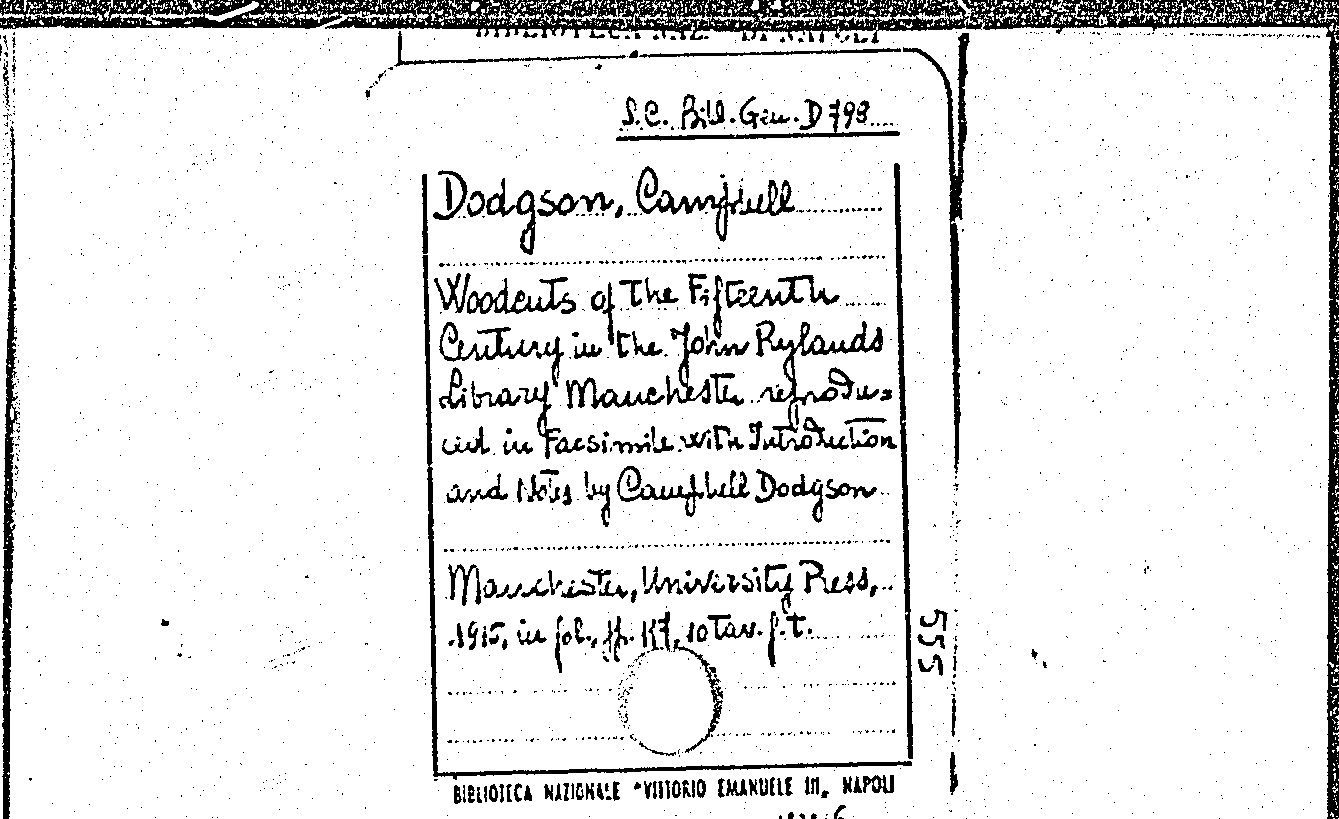 S.C. Bibl. Gen. D 798
Dodgson, Campbell
Woodcuts of the Fifteenth
Century in the John Rylands
Library Manchester reprodu=
ced in Facsimile with Introduction
and Notes by Campbell Dodgson
Manchester, University Press,
1915, in fol., pp. 17, 10 Tav. f.t.
555
BIBLIOTECA NAZIONALE "VITTORIO EMANUELE III„ NAPOLI